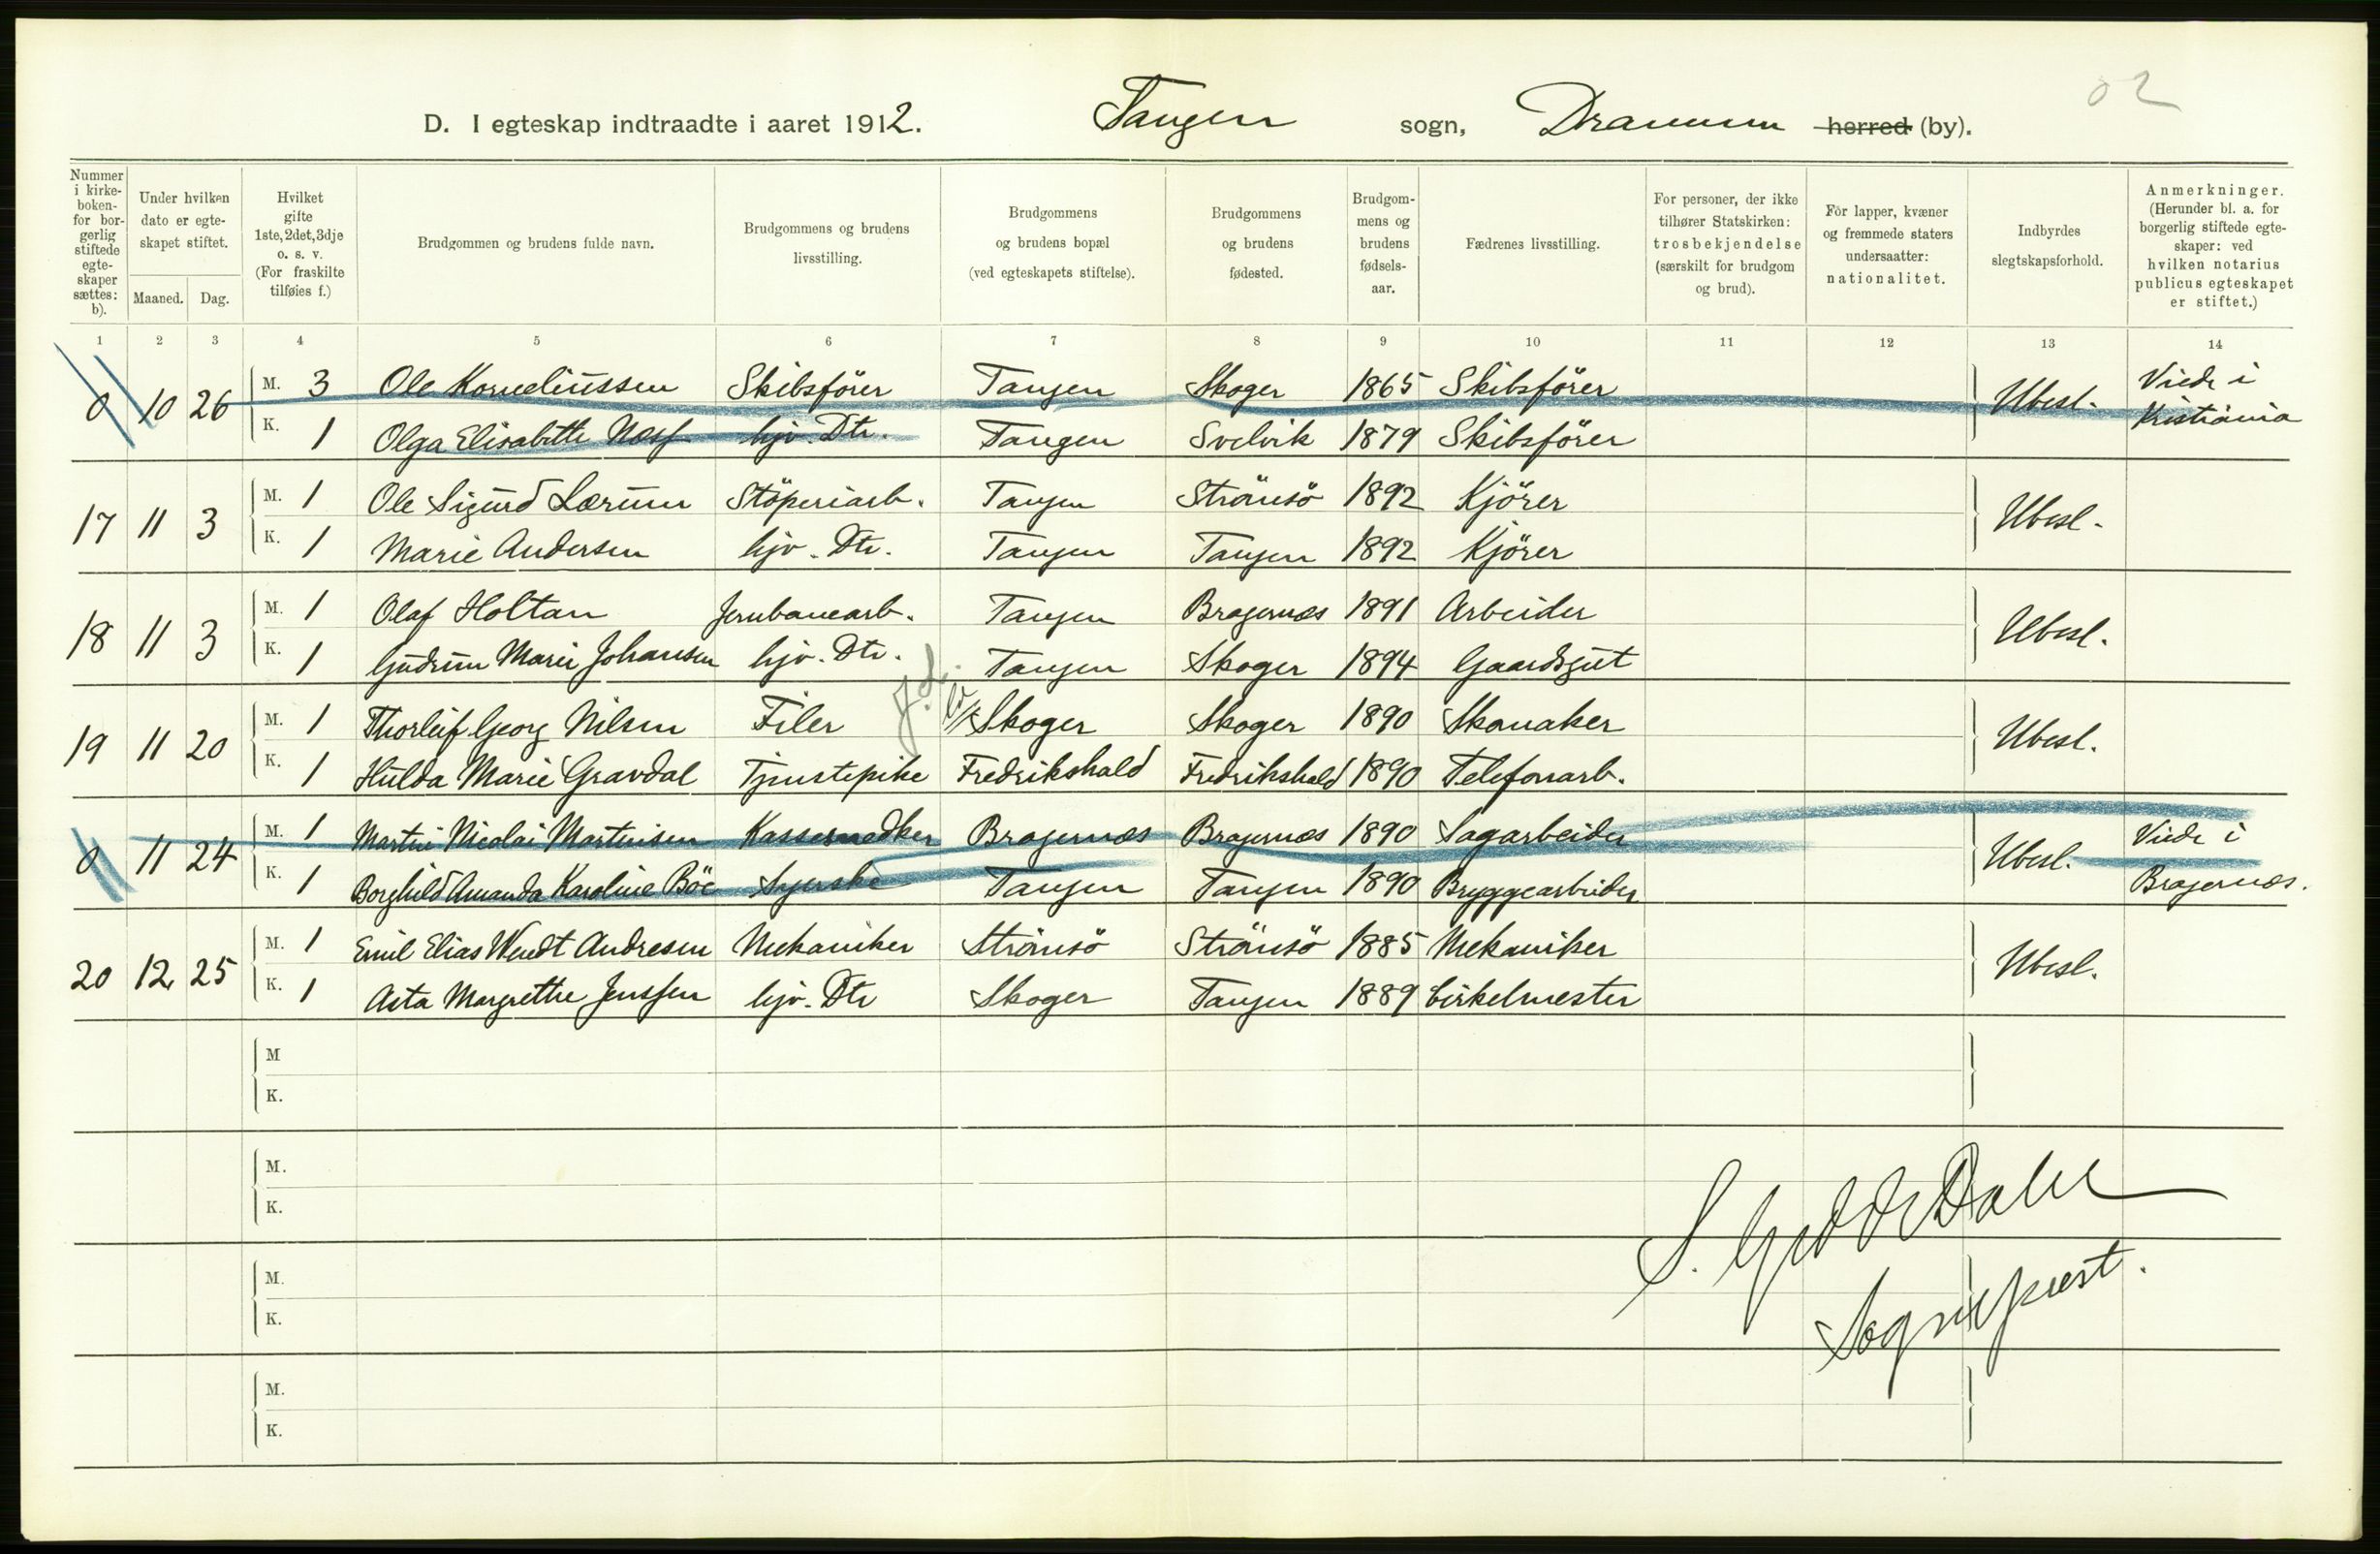 02
D. I egteskap indtraadte i aaret 1912. Tangen sogn, Drammen herred (by).
Nummer i kirkeboken- for borgerlig stiftede egteskaper sættes: b).
Under hvilken dato er egteskapet stiftet.
Maaned. Dag.
Hvilket gifte 1ste, 2det, 3dje o. s. v. (For fraskilte tilføies f.)
Brudgommen og brudens fulde navn.
Brudgommens og brudens livsstilling.
Brudgommens og brudens bopæl (ved egteskapets stiftelse).
Brudgommens og brudens fødested.
Brudgommens og brudens fødselsaar.
Fædrenes livsstilling.
For personer, der ikke tilhører Statskirken: trosbekjendelse (særskilt for brudgom og brud).
For lapper, kvæner og fremmede staters undersaatter: nationalitet.
Indbyrdes slegtskapsforhold.
Anmerkninger. (Herunder bl. a. for borgerlig stiftede egteskaper: ved hvilken notarius publicus egteskapet er stiftet.)
1 2 3 4 5 6 7 8 9 10 11 12 13 14
0 10 26 M. 3 Ole Korneliussen Skibsförer Tangen Skoger 1865 Skibsförer Ubesl. Viede i
K. 1 Olga Elisabette Næss hjv. Dtr. Tangen Svelvik 1879 Skibsförer Kristiania
17 11 3 M. 1 Ole Sigurd Lærum Stöperiarb. Tangen Strömsö 1892 Kjörer Ubesl.
K. 1 Marie Andersen hjv. Dtr. Tangen Tangen 1892 Kjörer
18 11 3 M. 1 Olaf Holtan Jernbanearb. Tangen Bragernæs 1891 Arbeider Ubesl.
K. 1 Gudrun Marie Johansen hjv. Dtr. Tangen Skoger 1894 Gaardsgut
19 11 20 M. 1 Thorleif Georg Nilsen Filer Skoger Skoger 1890 Skomaker Ubesl.
K. 1 Hulda Marie Gravdal Tjenstepike Fredrikshald Fredrikshald 1890 Telefonarb.
0 11 24 M. 1 Martin Nicolai Martinisen Kassesnedker Bragernæs Bragernæs 1890 Sagarbeider Ubesl. Viede i
K. 1 Borghild Amanda Karoline Böe Syerske Tangen Tangen 1890 Bryggearbeider Bragernæs.
20 12 25 M. 1 Emil Elias Wendt Andresen Mekaniker Strömsö Strömsö 1885 Mekaniker Ubesl.
K. 1 Asta Margrethe Jenssen hjv. Dtr Skoger Tangen 1889 Cirkelmester
M
K.
M.
K.
M.
K.
M.
K.
S. Gedde Dahl
Sogneprest.